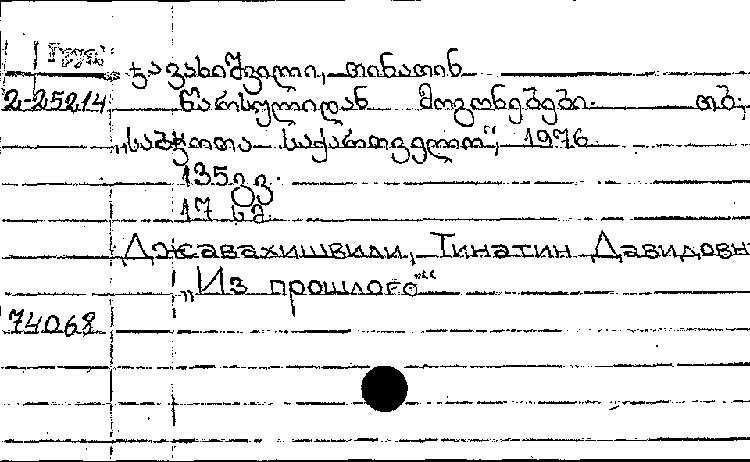 Груз.
ჯავახიშვილი, თინათინ
2-25214 წარსულიდან მოგონებები. თბ.,
„საბჭოთა საქართველო“, 1976
135 გვ.
17 სმ.
Джавахишвили, Тинатин Давидовн
„Из прошлого“
74068